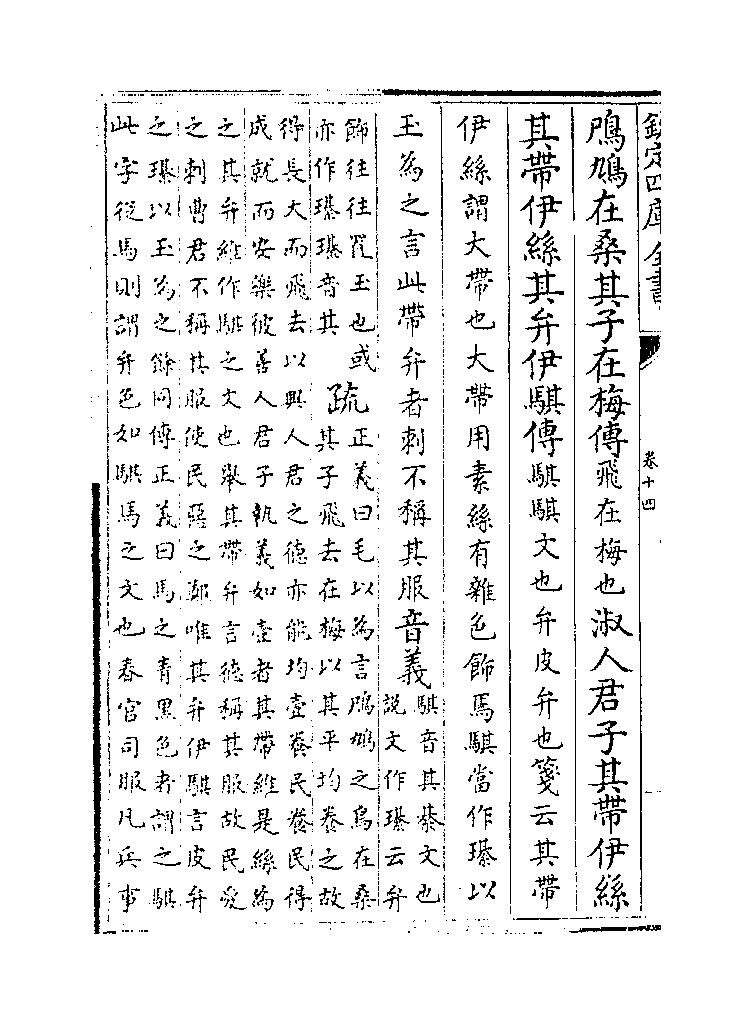 欽定四庫全書
卷十四
鳲鳩在桑其子在梅傳飛在梅也淑人君子其帶伊絲
其帶伊絲其弁伊騏傳騏騏文也弁皮弁也箋云其帶
伊絲謂大帶也大帶用素絲有雜色飾焉騏當作㻽以
玉為之言此帶弁者刺不稱其服音義
騏音其綦文也
說文作㻽云弁
飾往往置玉也或
亦作璂㻽音其
疏
正義曰毛以為言鳲鳩之鳥在桑
其子飛去在梅以其平均養之故
得長大而飛去以興人君之德亦能均壹養民養民得
成就而安樂彼善人君子執義如壹者其帶維是絲為
之其弁維作騏之文也舉其帶弁言德稱其服故民愛
之刺曹君不稱其服使民惡之鄭唯其弁伊騏言皮弁
之㻽以玉為之餘同傳正義曰馬之青黑色者謂之騏
此字從馬則謂弁色如騏馬之文也春官司服凡兵事